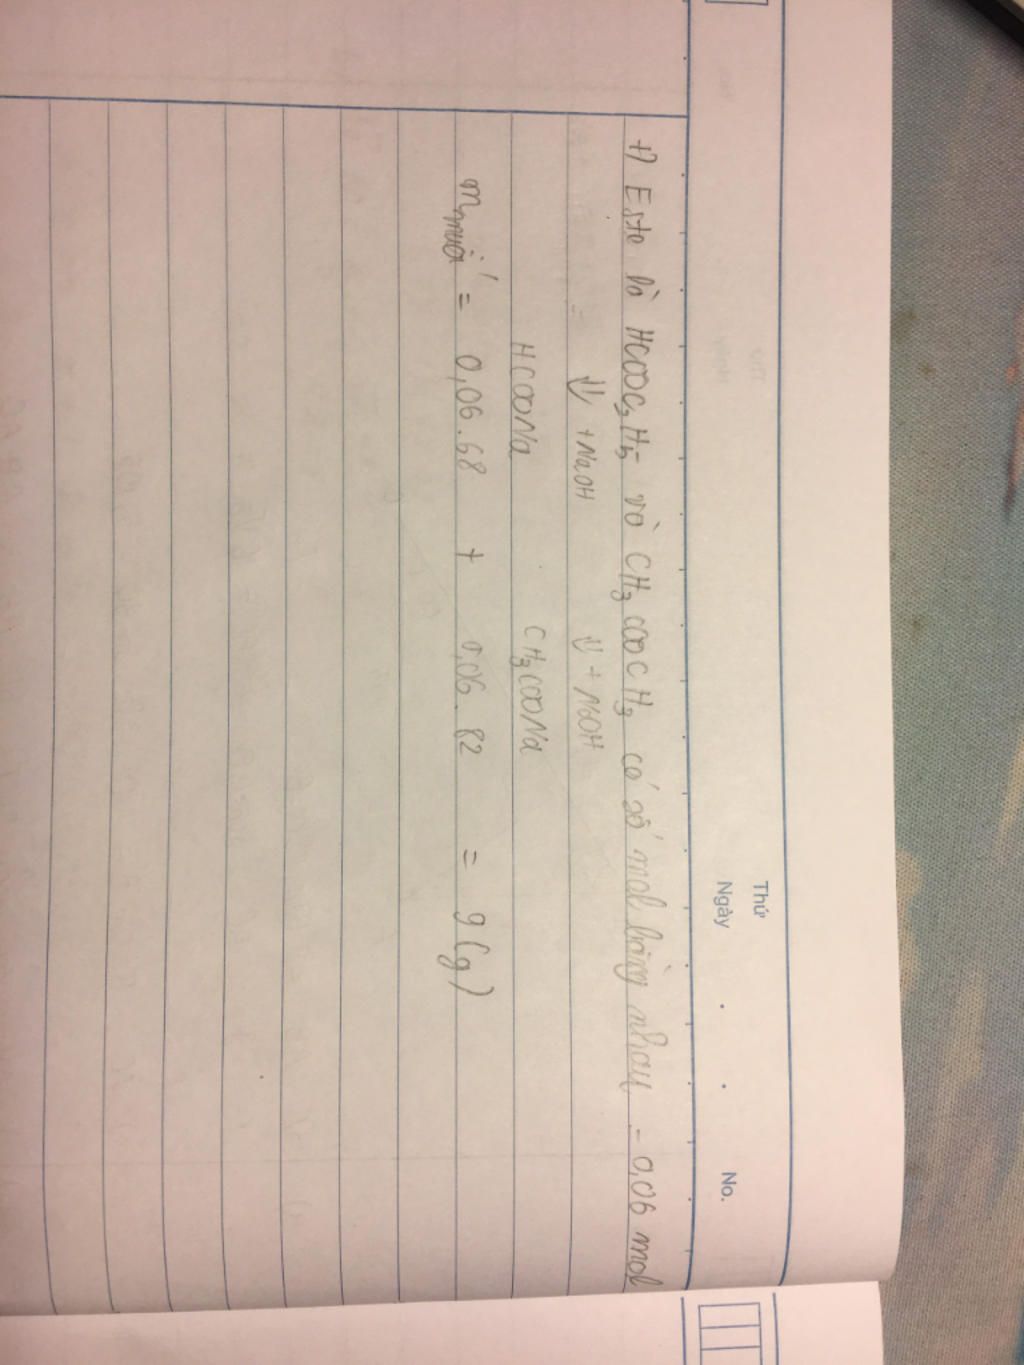 Thứ
Ngày . . No.
+) Este là HCOOC2H5 và CH3COOCH3 có số mol bằng nhau - 0,06 mol
⇓ +NaOH ⇓ + NaOH
HCOONa CH3COONa
m muối = 0,06.68 + 0,06.82 = 9(g)